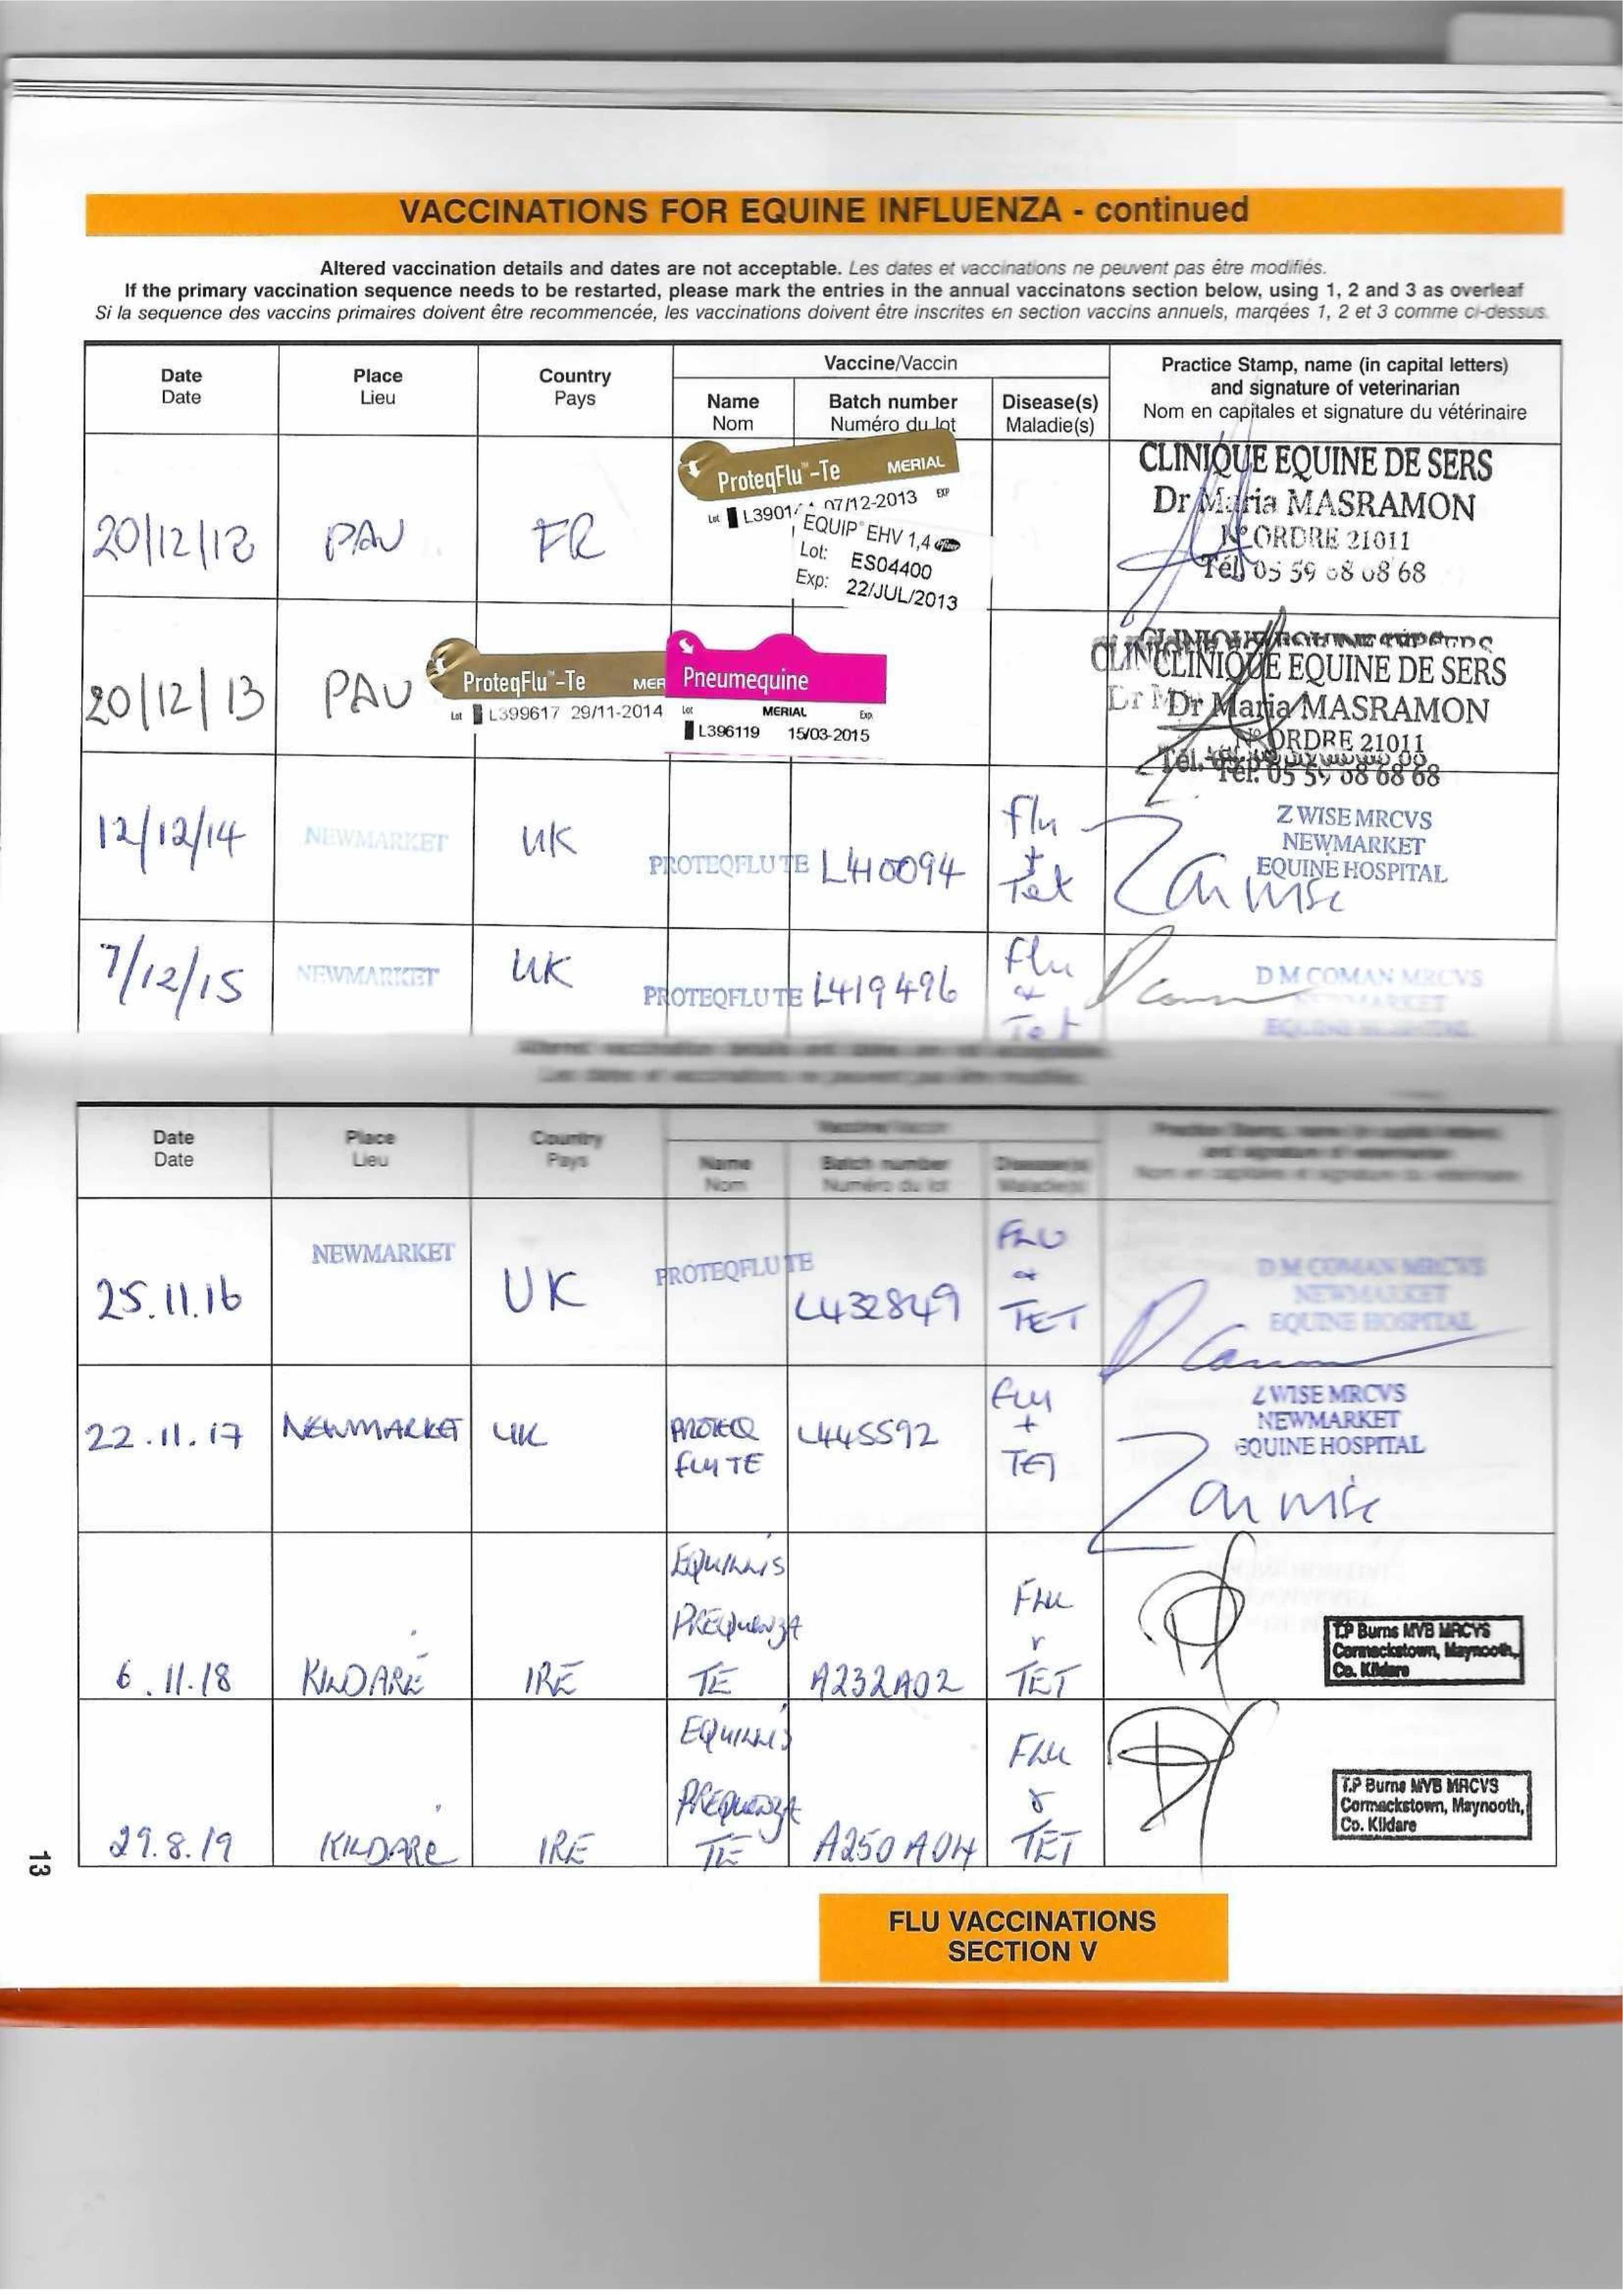 VACCINATIONS FOR EQUINE INFLUENZA - continued
Altered vaccination details and dates are not acceptable. Les dates et vaccinations ne peuvent pas être modifiés.
If the primary vaccination sequence needs to be restarted, please mark the entries in the annual vaccinatons section below, using 1, 2 and 3 as overleaf
Si la sequence des vaccins primaires doivent être recommencée, les vaccinations doivent être inscrites en section vaccins annuels, marqées 1, 2 et 3 comme ci-dessus.
Date
Date
Place
Lieu
Country
Pays
Vaccine/Vaccin
Name
Nom
Batch number
Numéro du lot
Disease(s)
Maladie(s)
Practice Stamp, name (in capital letters)
and signature of veterinarian
Nom en capitales et signature du vétérinaire
20/12/12
PAU
FR
ProteqFlu™-Te MERIAL
Lot L3901 07/12-2013 EXP
EQUIP® EHV 1,4 Pfizer
Lot: ES04400
Exp: 22/JUL/2013
CLINIQUE EQUINE DE SERS
Dr Maria MASRAMON
N° ORDRE 21011
Tél. 05 59 68 68 68
20/12/13
PAU
ProteqFlu™-Te MER
Lot L399617 29/11-2014
Pneumequine
Lot MERIAL Exp.
L396119 15/03-2015
CLINIQUE EQUINE DE SERS
Dr Maria MASRAMON
N° ORDRE 21011
Tél. 05 59 68 68 68
12/12/14
NEWMARKET
UK
PROTEQFLU TE
L410094
flu
+
Tet
Z WISE MRCVS
NEWMARKET
EQUINE HOSPITAL
7/12/15
NEWMARKET
UK
PROTEQFLU TE
L419496
flu
&
Tet
D M COMAN MRCVS
NEWMARKET
Altered vaccination details and dates are not acceptable.
Les dates et vaccinations ne peuvent pas être modifiés.
Date
Date
Place
Lieu
Country
Pays
Vaccine/Vaccin
Name
Nom
Batch number
Numéro du lot
Disease(s)
Maladie(s)
Practice Stamp, name (in capital letters)
and signature of veterinarian
Nom en capitales et signature du vétérinaire
25.11.16
NEWMARKET
UK
PROTEQFLU TE
L432849
FLU
&
TET
D M COMAN MRCVS
NEWMARKET
EQUINE HOSPITAL
22.11.17
NEWMARKET
UK
PROTEQ
FLU TE
L445592
FLU
+
TET
Z WISE MRCVS
NEWMARKET
EQUINE HOSPITAL
6.11.18
KILDARE
IRE
EQUILIS
PREQUENZA
TE
A232A02
FLU
&
TET
T.P Burns MVB MRCVS
Cormackstown, Maynooth,
Co. Kildare
29.8.19
KILDARE
IRE
EQUILIS
PREQUENZA
TE
A250A04
FLU
&
TET
T.P Burns MVB MRCVS
Cormackstown, Maynooth,
Co. Kildare
13
FLU VACCINATIONS
SECTION V